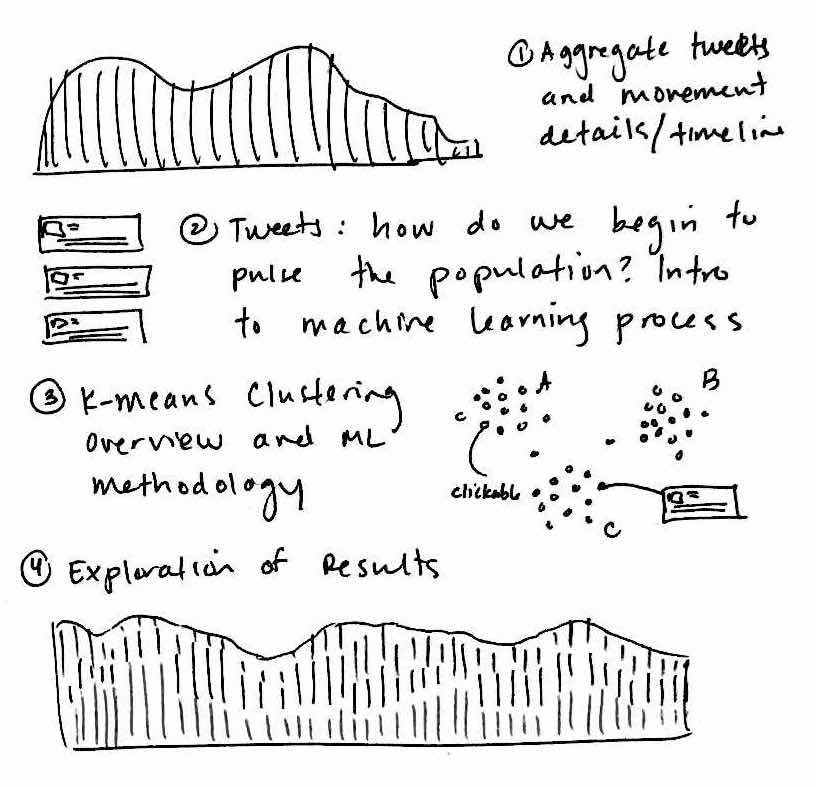 ① Aggregate tweets
and movement
details/timeline
② Tweets: how do we begin to
pulse the population? Intro
to machine learning process
③ K-means Clustering
overview and ML
methodology
A
B
C
clickable
C
④ Exploration of Results